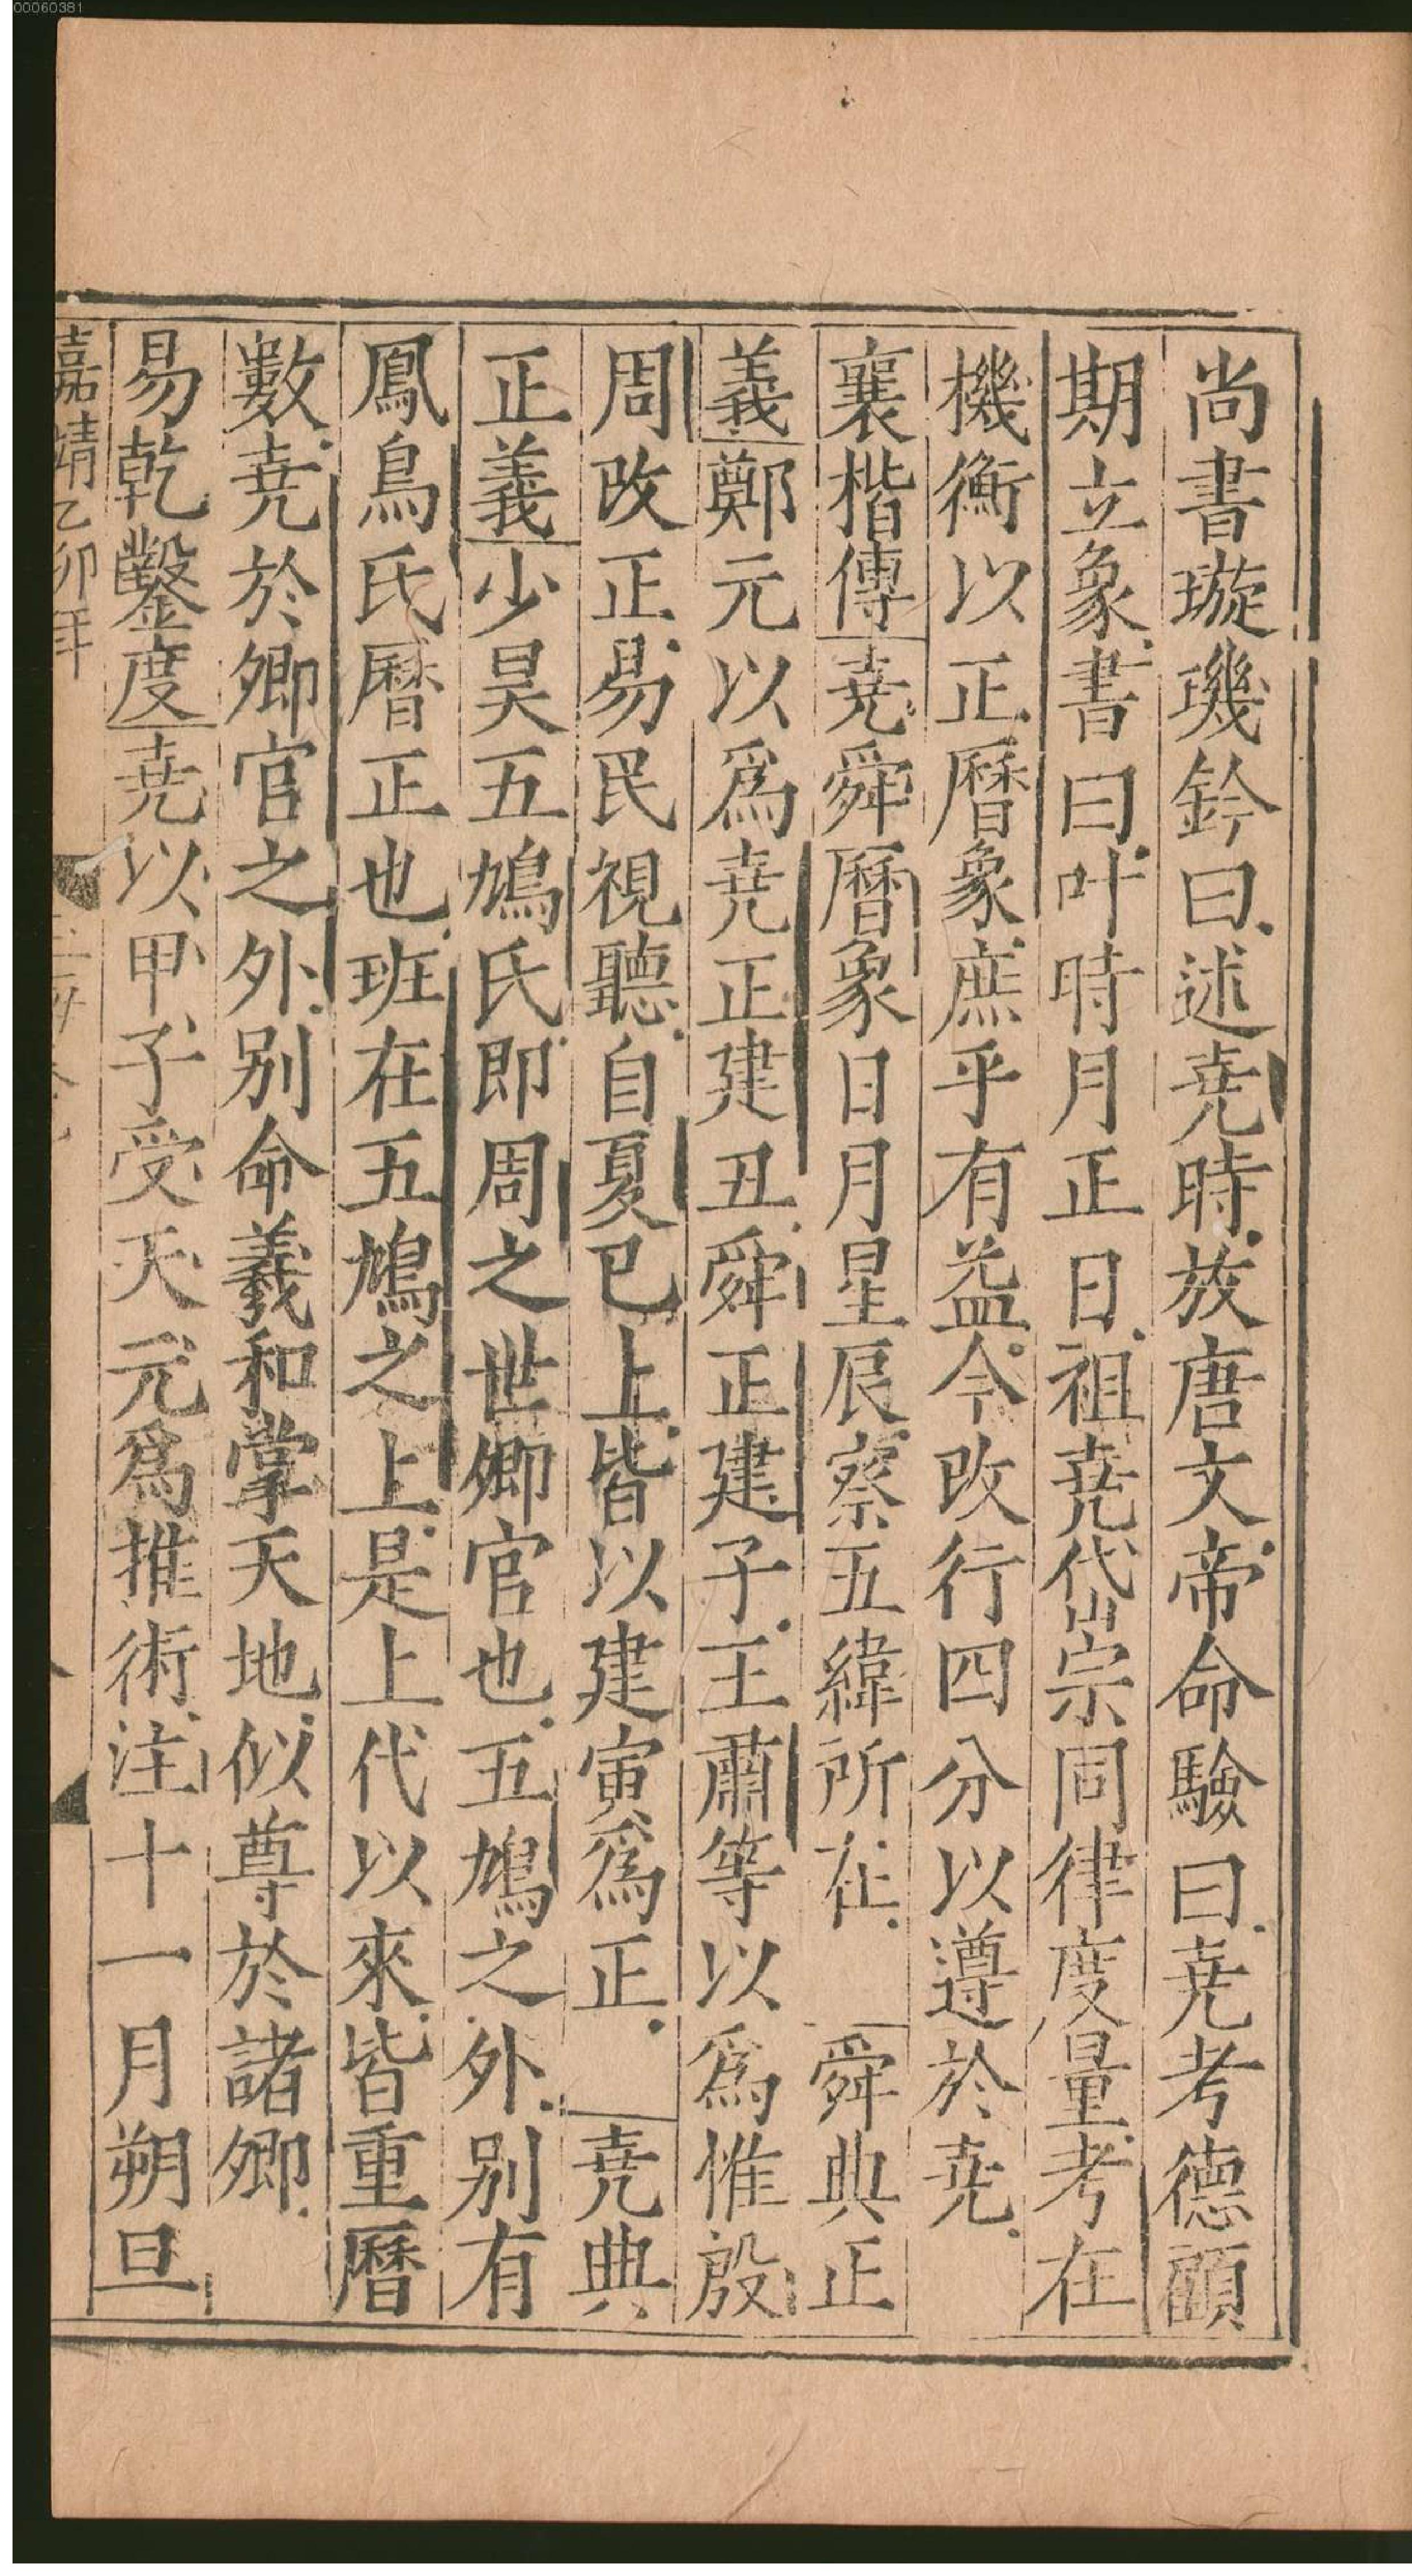 00060381
尚書璇璣鈐曰述尭時放唐文帝命驗曰尭考德顧
期立象書曰叶時月正日祖尭岱宗同律度量考在
機衡以正曆象庶乎有益今改行四分以遵於尭
襄楷傳尭舜曆象日月星辰察五緯所在 舜典正
義鄭元以爲尭正建丑舜正建子王肅等以爲惟殷
周改正易民視聽自夏已上皆以建寅爲正 尭典
正義少昊五鳩氏即周之世卿官也五鳩之外别有
鳳鳥氏曆正也班在五鳩之上是上代以來皆重曆
數尭於卿官之外别命羲和掌天地似尊於諸卿
易乾鑿度尭以甲子受天元爲推術注十一月朔旦
嘉靖乙卯年